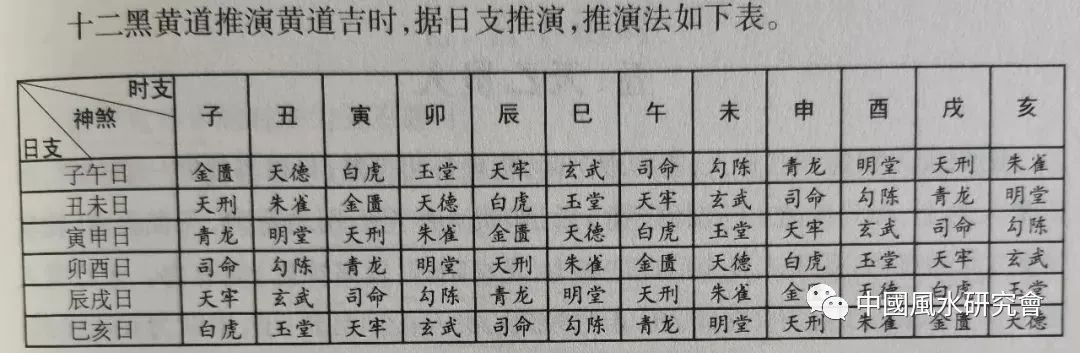 十二黑黄道推演黄道吉时,据日支推演,推演法如下表。
时支 神煞 日支 子 丑 寅 卯 辰 巳 午 未 申 酉 戌 亥
子午日 金匮 天德 白虎 玉堂 天牢 玄武 司命 勾陈 青龙 明堂 天刑 朱雀
丑未日 天刑 朱雀 金匮 天德 白虎 玉堂 天牢 玄武 司命 勾陈 青龙 明堂
寅申日 青龙 明堂 天刑 朱雀 金匮 天德 白虎 玉堂 天牢 玄武 司命 勾陈
卯酉日 司命 勾陈 青龙 明堂 天刑 朱雀 金匮 天德 白虎 玉堂 天牢 玄武
辰戌日 天牢 玄武 司命 勾陈 青龙 明堂 天刑 朱雀 金 天德 白虎 玉堂
巳亥日 白虎 玉堂 天牢 玄武 司命 勾陈 青龙 明堂 天刑 朱雀 金匮 天德
中國風水研究會